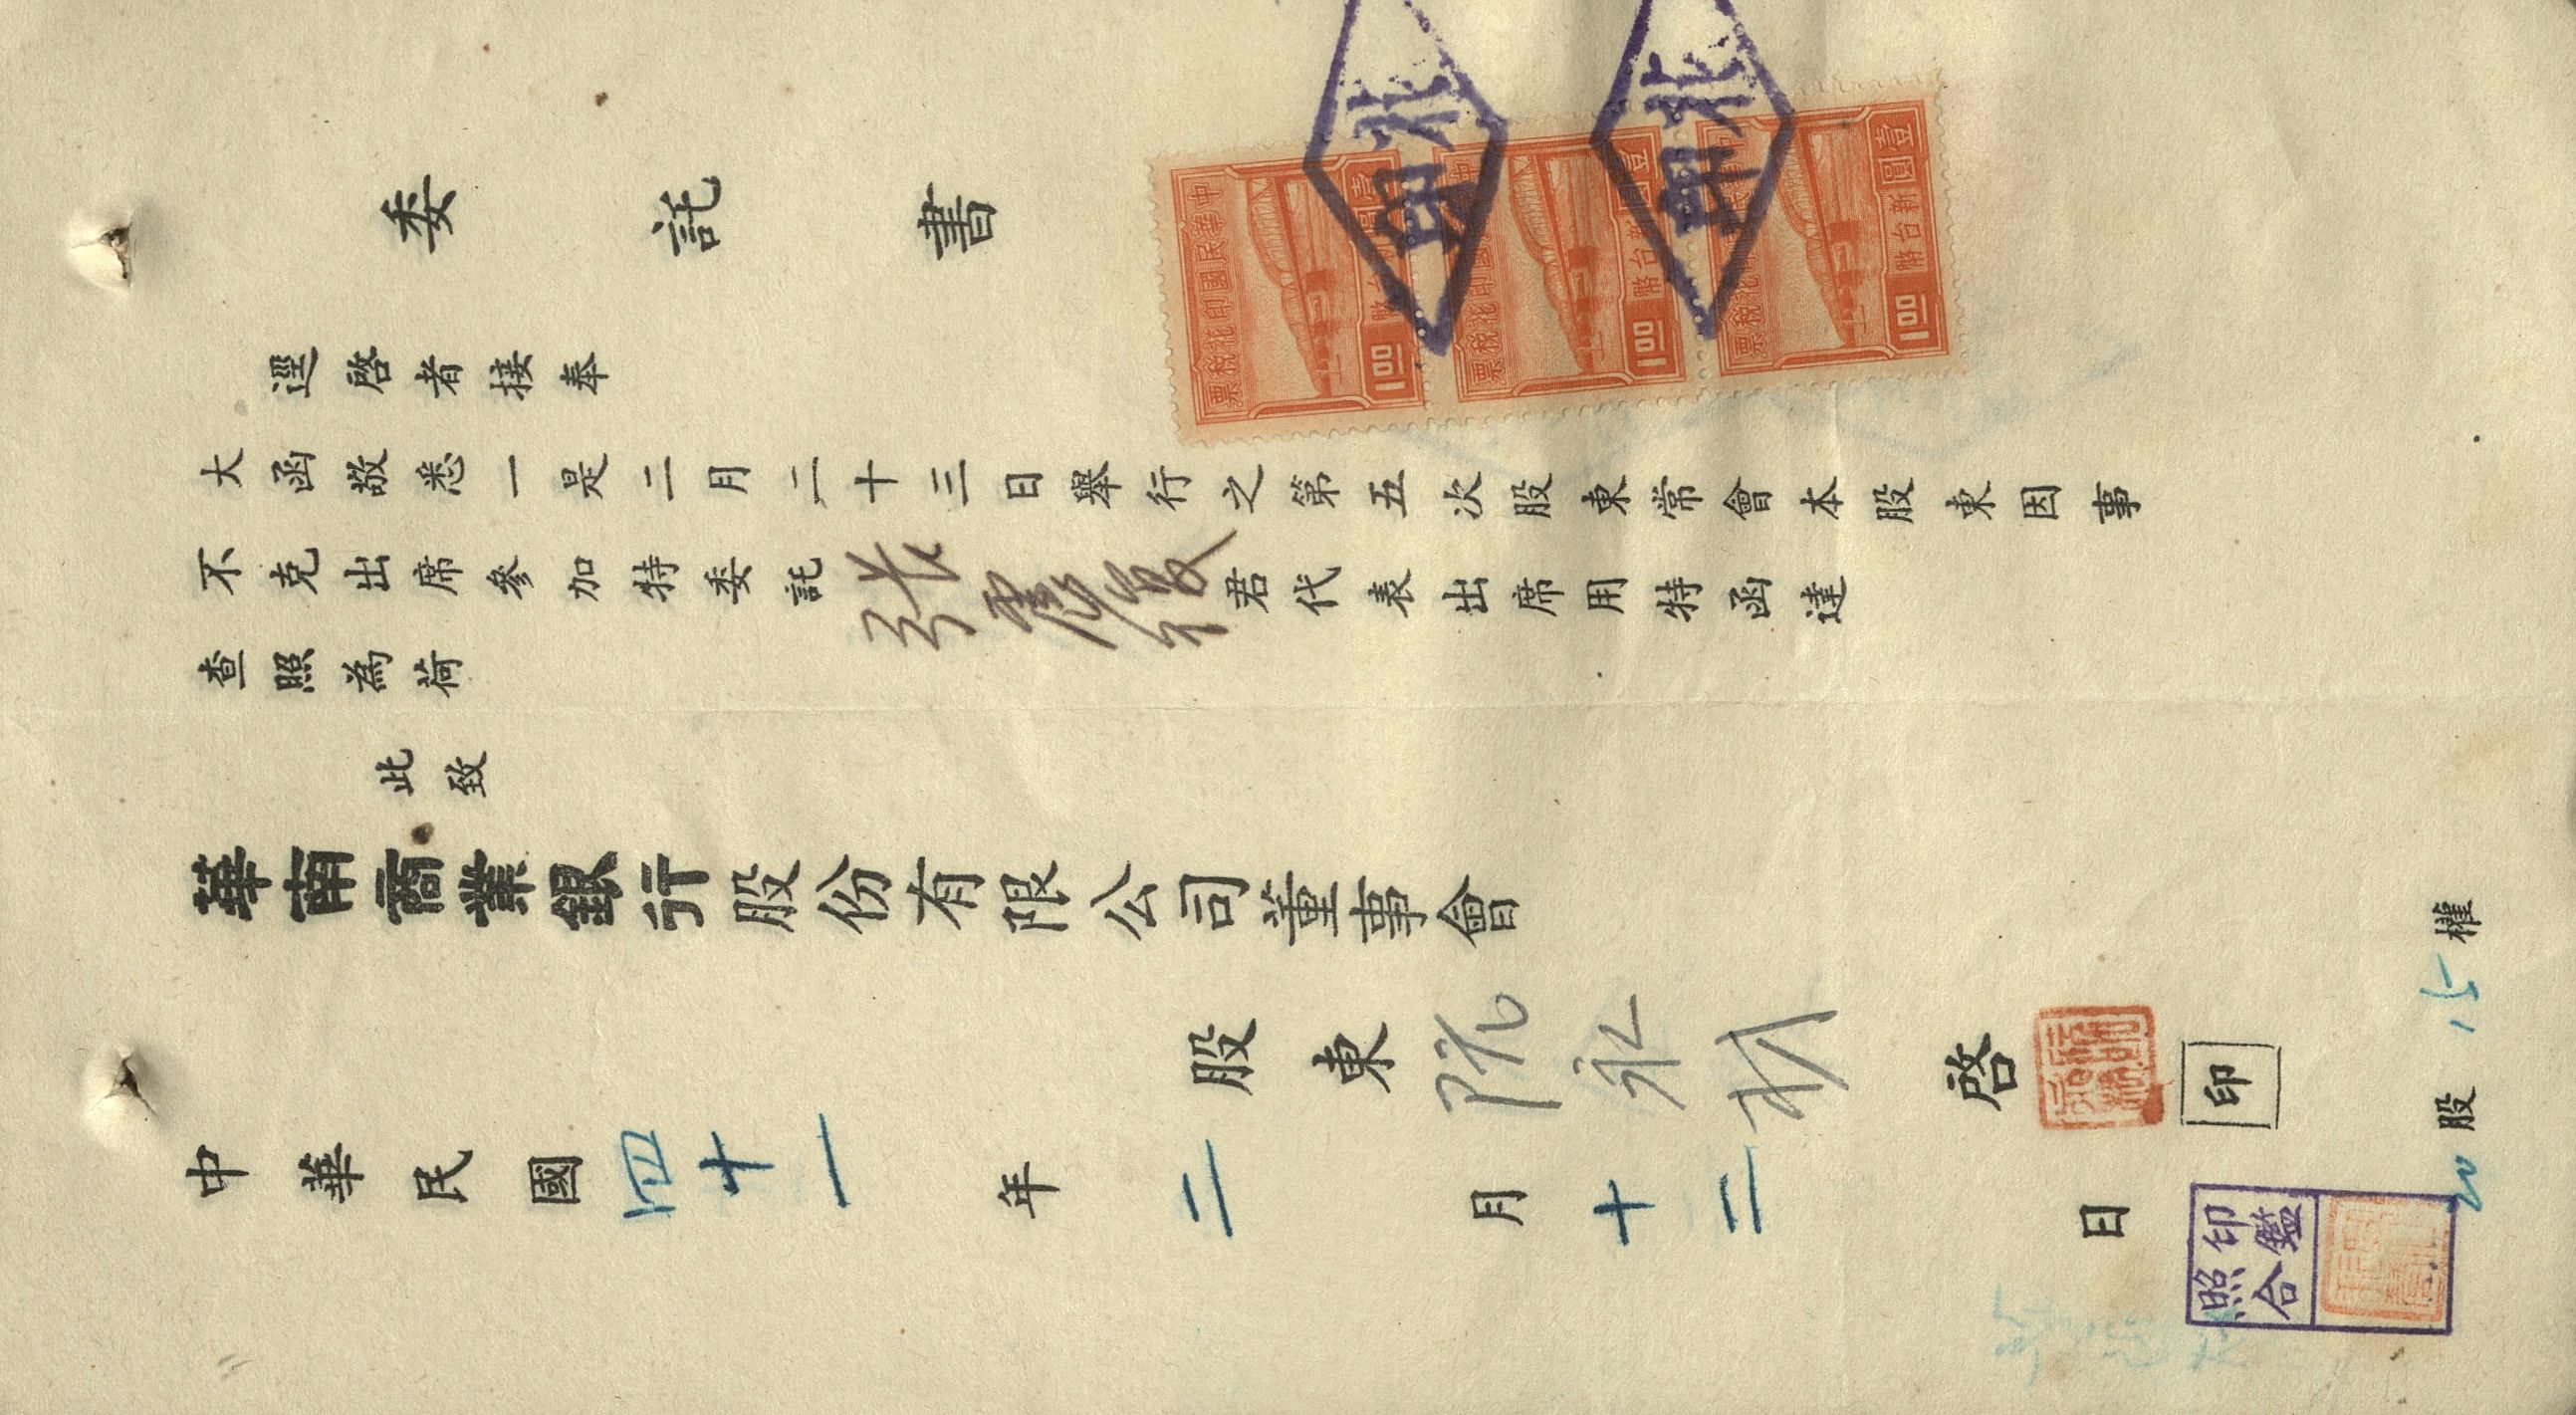 委託書
逕啓者接奉
大函敬悉一是二月二十三日舉行之第五次股東常會本股東因事
不克出席參加特委託張 君代表出席用特函達
查照為荷
此致
華南商業銀行股份有限公司董事會
股東阮永 啓
印
中華民國四十一年二月十二日
20股 15權
印鑑
照合
中華民國印花稅票
壹圓
1.00
中
印花稅票
壹圓新台幣
1.00
稅票
壹圓新台幣
1.00
北
北